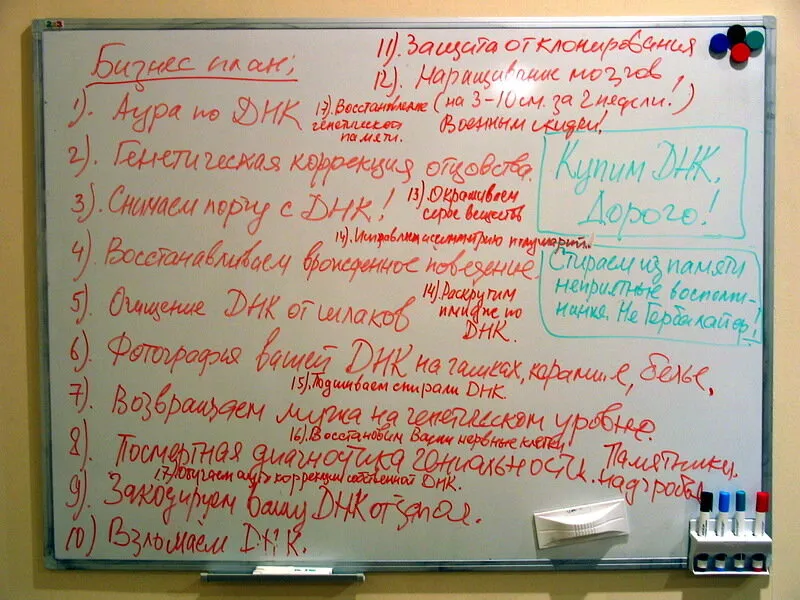 Бизнес план:
1). Аура по ДНК
2). Генетическая коррекция отцовства.
3). Снимаем порчу с ДНК!
4). Восстанавливаем врожденное поведение.
5). Очищение ДНК от шлаков
6). Фотография вашей ДНК на чашках, керамике, белье,
7). Возвращаем мужа на генетическом уровне.
8). Посмертная диагностика гениальности. Памятники.
надгробья
9). Закодируем вашу ДНК от запоя.
10) Взломаем ДНК.
11). Защита от клонирования
12). Наращивание мозгов
(на 3-10 см. за 2 недели!)
Военным скидки!
17). Восстановление
генетической
памяти.
13). Окрашиваем
серое вещество
14). Исправляем асимметрию полушарий.
14). Раскрутим
имидж по
ДНК.
15). Подшиваем спирали ДНК.
16). Восстановим Ваши нервные клетки
17). Обучаем коррекции собственной ДНК.
Купим ДНК.
Дорого!
Стираем из памяти
неприятные воспоми-
нания. Не Гербалайф!